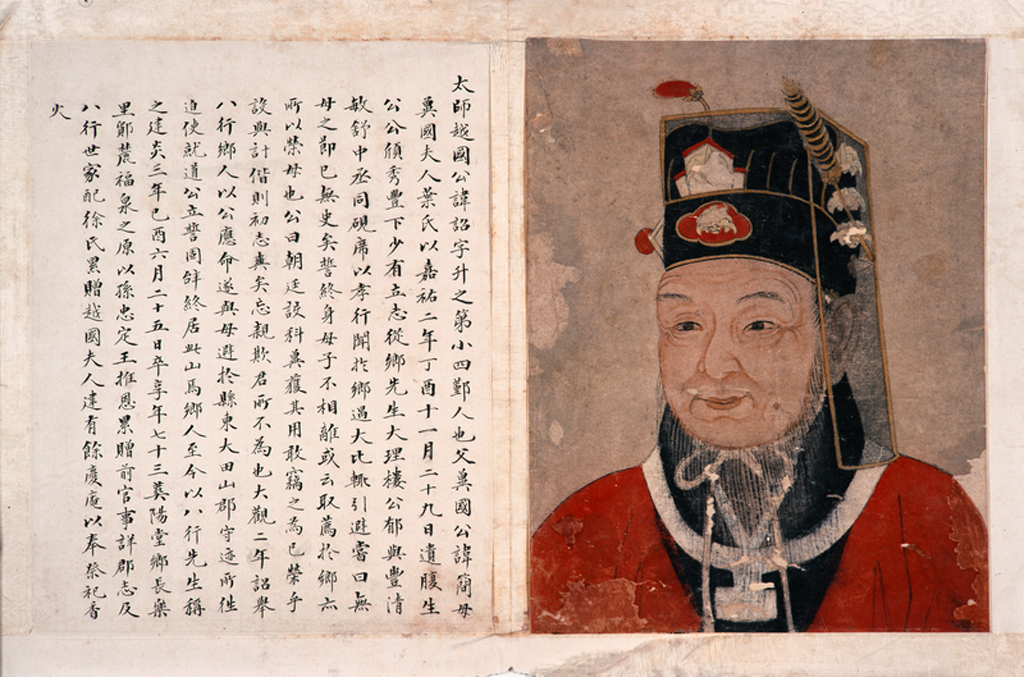 太師越國公諱詔字升之第小四鄞人也父冀國公諱簡母
冀國夫人葉氏以嘉祐二年丁酉十一月二十九日遺腹生
公公頎秀豐下少有立志從鄉先生大理樓公郁與豐清
敏舒中丞同硯席以孝行聞於鄉遇大比輒引避嘗曰無
母之節已無史矣誓終身母子不相離或云取薦於鄉亦
所以榮母也公曰朝廷設科冀獲其用敢竊之為已榮乎
設與計偕則初志爽矣忘親欺君所不為也大觀二年詔舉
八行鄉人以公應命遂與母避於縣東大田山郡守迹所徃
迫使就道公立誓固辞終居此山焉鄉人至今以八行先生稱
之建炎三年已酉六月二十五日卒享年七十三葬陽堂鄉長樂
里鄮麓福泉之原以孫忠定王推恩累贈前官事詳郡志及
八行世家配徐氏累贈越國夫人建有餘慶庵以奉祭祀香
火